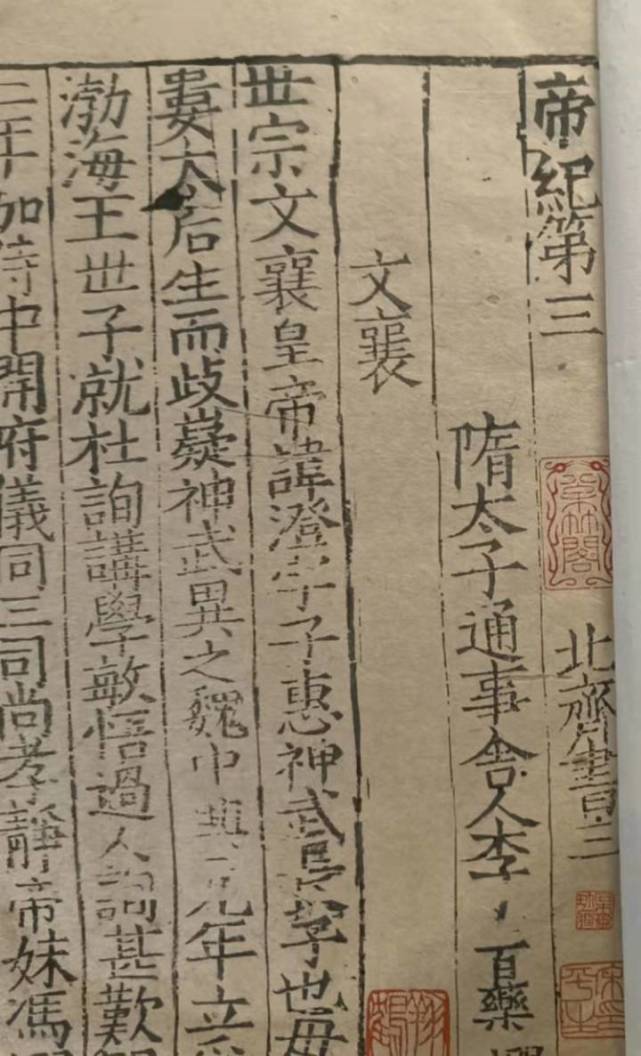 帝紀第三 北齊書三
隋太子通事舍人李 百藥
文襄
世宗文襄皇帝諱澄字子惠神武長子也母
婁太后生而歧嶷神武異之魏中興元年立
渤海王世子就杜詢講學敏悟過人詢甚歎
二年加侍中開府儀同三司尚孝靜帝妹馮